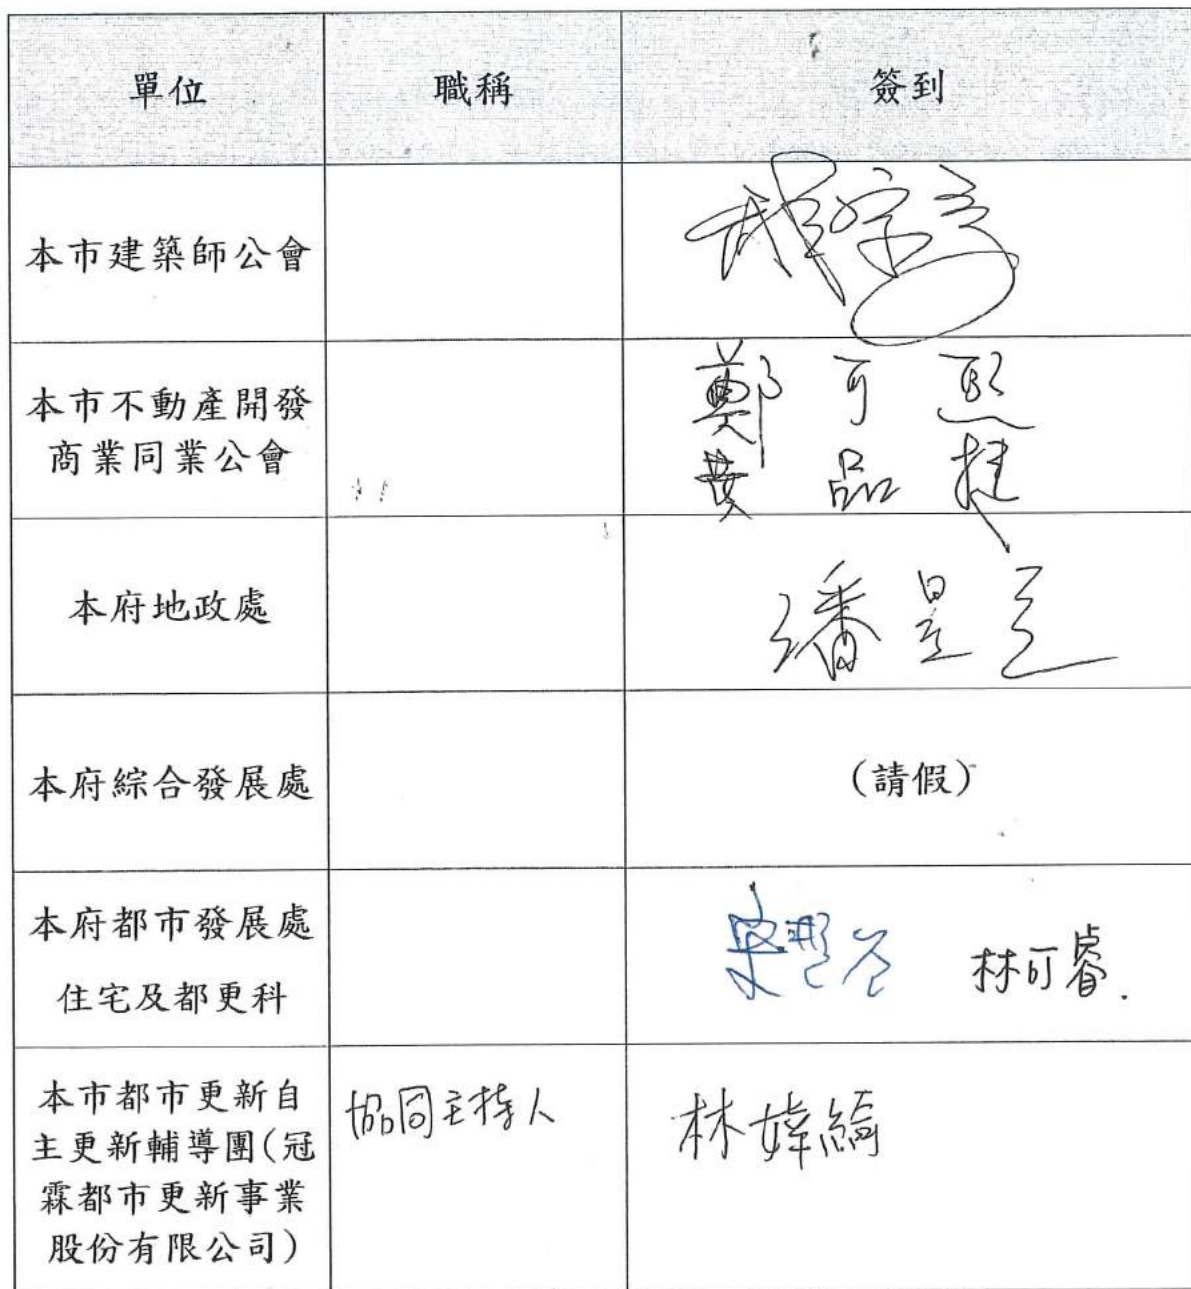 單位 職稱 簽到
本市建築師公會
本市不動產開發
商業同業公會
鄭可熙
黄品捷
本府地政處
潘
本府綜合發展處 (請假)
本府都市發展處
住宅及都更科
林可睿.
本市都市更新自
主更新輔導團(冠
霖都市更新事業
股份有限公司)
協同主持人
林婕綺